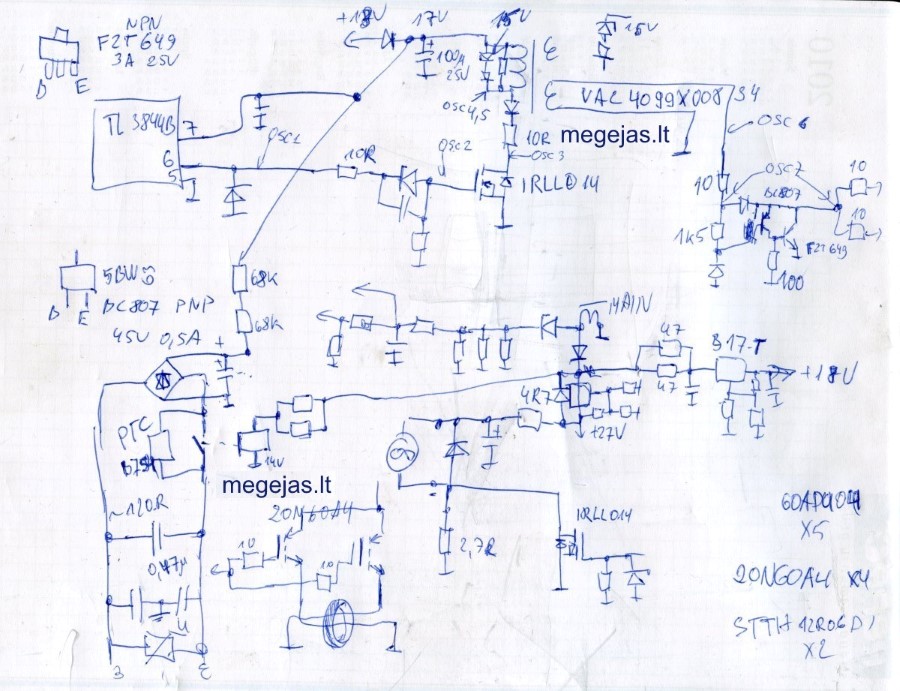 NPN
FZT 649
3A 25V
B E
+18V
17V
15V
15V
100µ
25V
OSC 4,5
VAC 4099X008/S4
OSC 6
TL 3844B
7
6
5
OSC1
10R
OSC2
10R
OSC3
megejas.lt
IRLL014
10
OSC7
BC807
10
10
1k5
FZT649
100
5BW
BC807 PNP
B E
45V 0,5A
68K
68K
+
MAIN
47
47
817-T
+18V
4R7
+27V
PTC
14V
megejas.lt
~120R
20N60A4
10
10
2,7R
IRLL014
0,47µ
60APU04
X5
20N60A4 X4
STTH12R06D1
X2